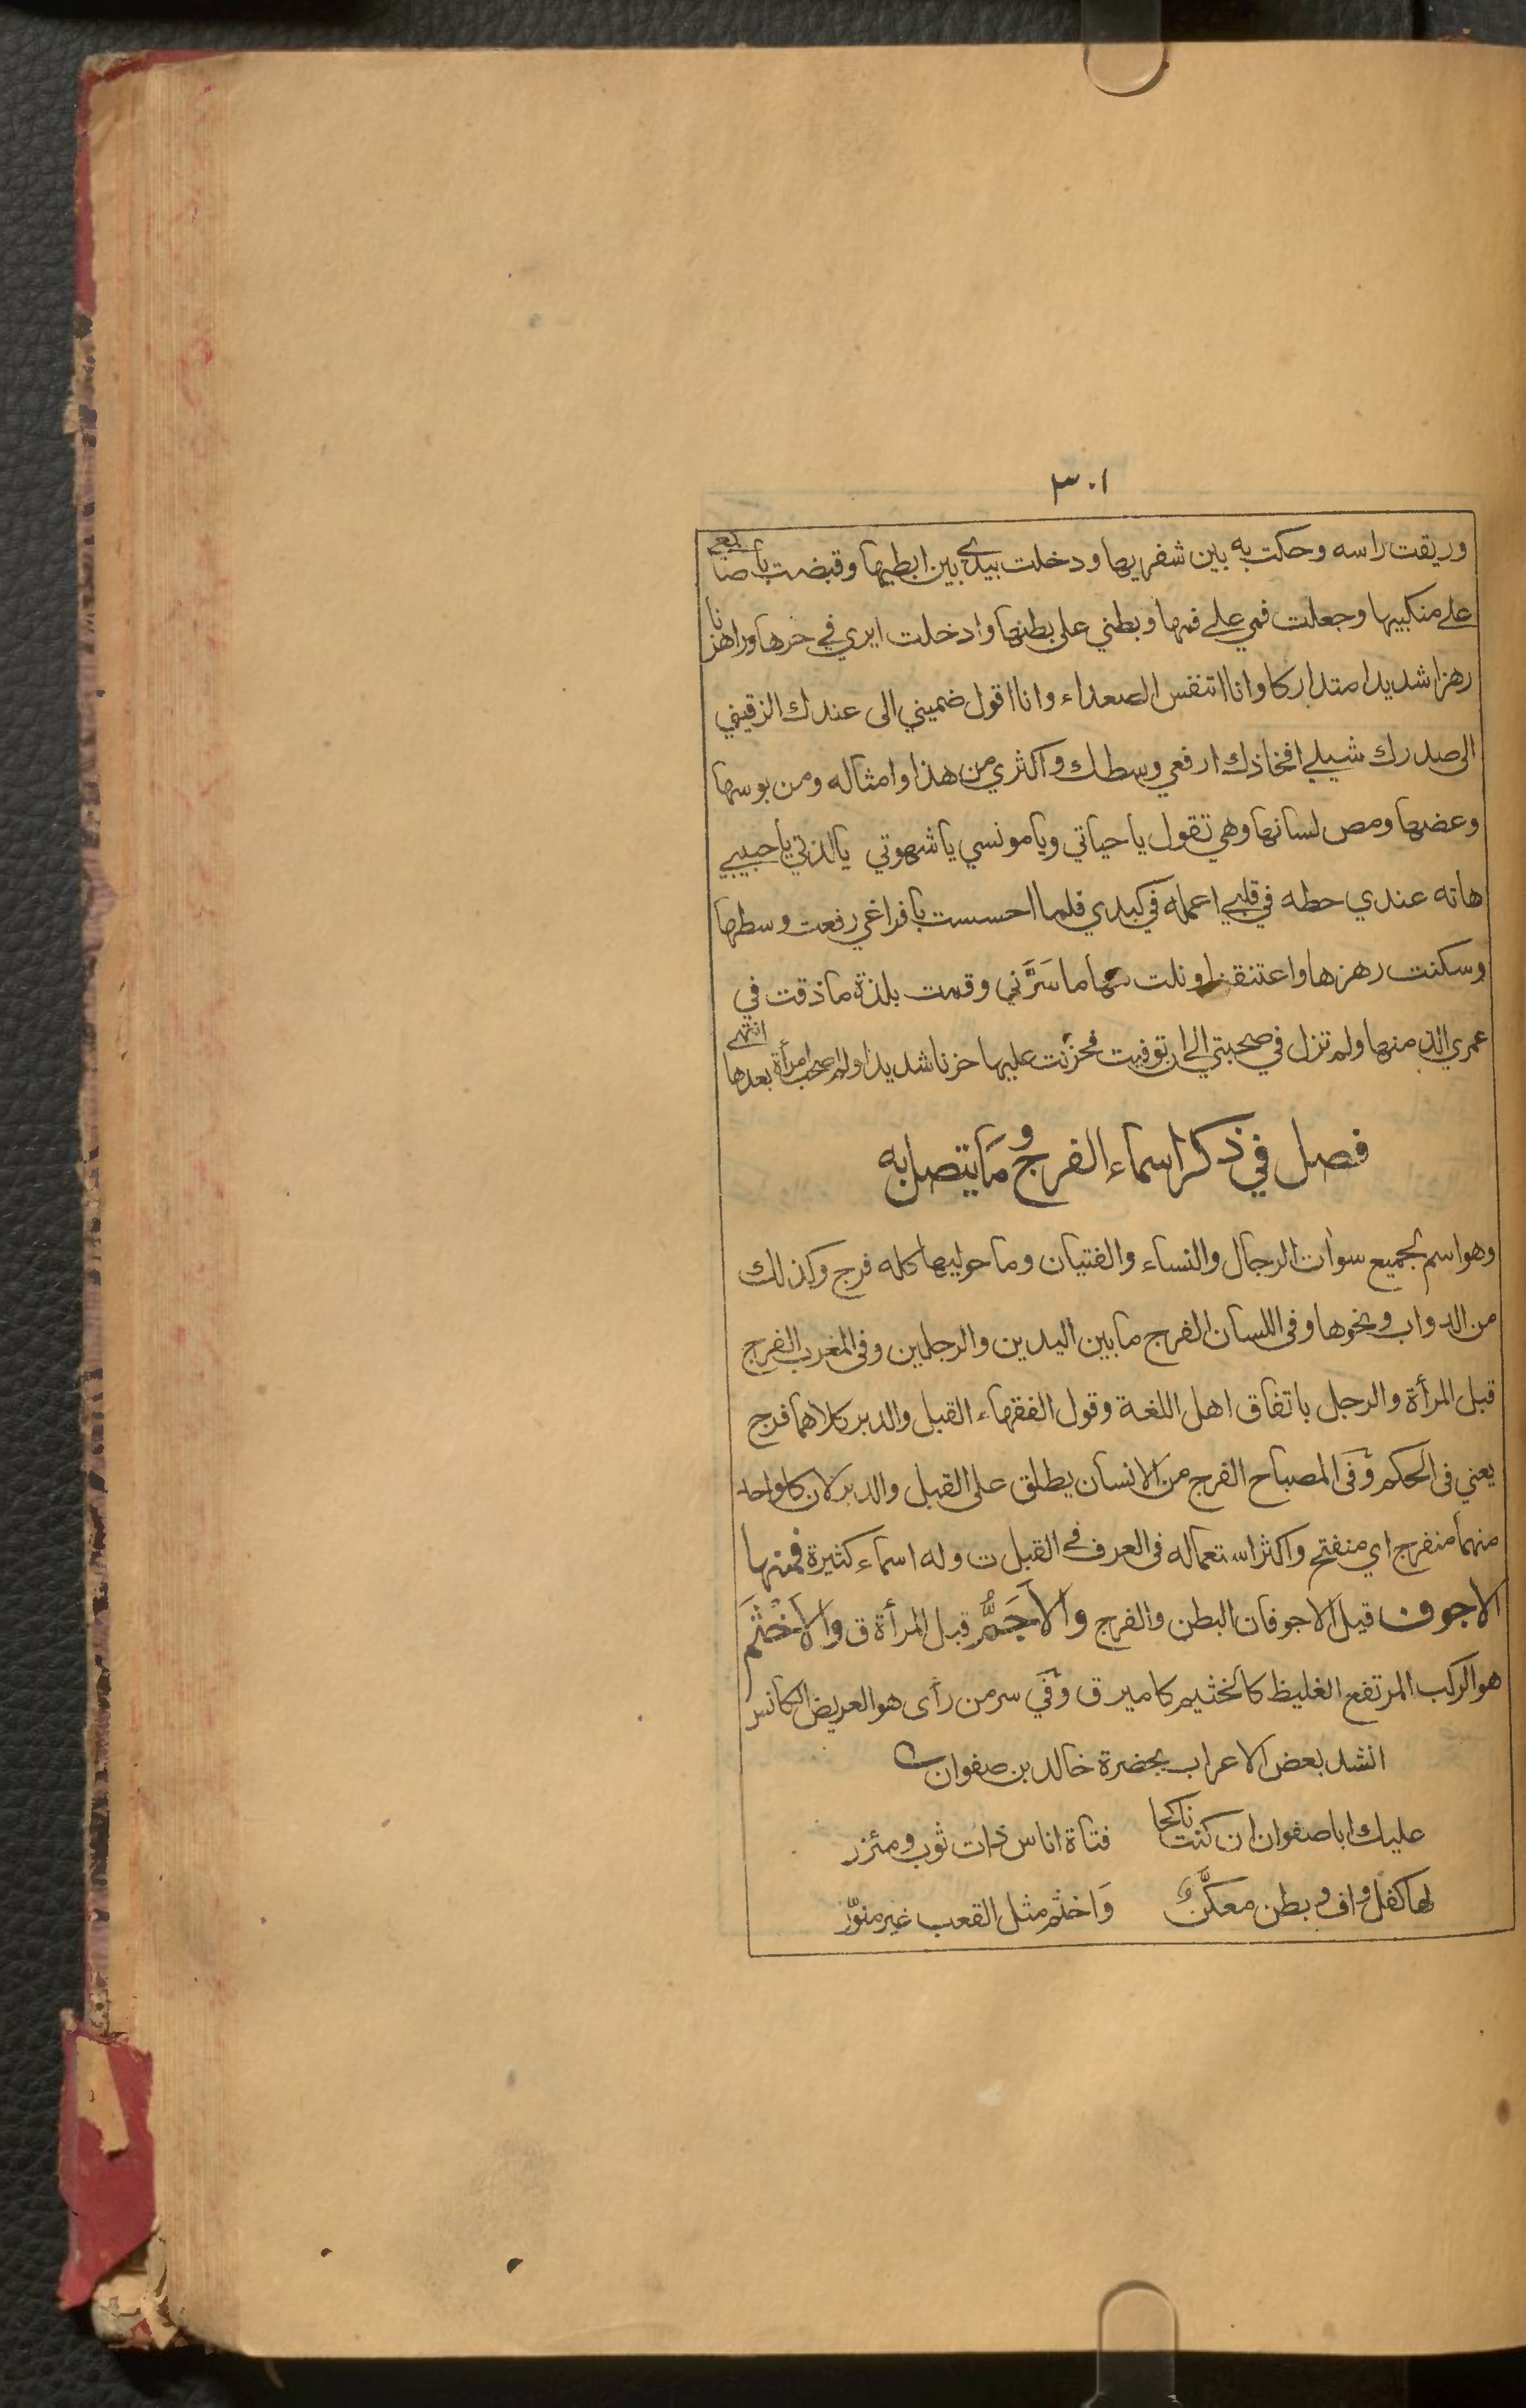 ٣٠١
وريقت راسه وحكت به بين شفريها ودخلت بيدي بين ابطيها وقبضت باصابعي
على منكبيها وجعلت فمي على فمها وبطني على بطنها وادخلت ايري في حرها وراهزنا
رهزا شديدا متداركا وانا اتنفس الصعداء وانا اقول ضميني الى عندك الزقيني
الى صدرك شيلي افخاذك ارفعي وسطك واكثري من هذا وامثاله ومن بوسها
وعضها ومص لسانها وهي تقول يا حياتي ويا مونسي يا شهوتي يا لذتي يا حبيبي
هاته عندي حطه في قلبي اعمله في كبدي فلما احسست بافراغي رفعت وسطها
وسكنت رهزها واعتنقنا ونلت منها ما سَرَّني وقمت بلذة ما ذقت في
عمري الذ منها ولم تزل في صحبتي الى ان توفيت فحزنت عليها حزنا شديدا ولم اصحب امرأة بعدها انتهى
فصل في ذكر اسماء الفرج وما يتصل به
وهو اسم لجميع سوات الرجال والنساء والفتيان وما حوليها كله فرج وكذلك
من الدواب ونحوها وفى اللسان الفرج ما بين اليدين والرجلين وفى المغرب الفرج
قبل المرأة والرجل باتفاق اهل اللغة وقول الفقهاء القبل والدبر كلاهما فرج
يعني فى الحكم وفى المصباح الفرج من الانسان يطلق على القبل والدبر لان كل واحد
منهما منفرج اي منفتح واكثر استعماله فى العرف في القبل ت وله اسماء كثيرة فمنها
الاجوف قيل الاجوفان البطن والفرج والاَجَمُّ قبل المرأة ق والاَخْثَم
هو الركب المرتفع الغليظ كالخثيم كامير ق وفي سر من رأى هو العريض الكانس
انشد بعض الاعراب بحضرة خالد بن صفوان
عليك ابا صفوان ان كنت ناكحا فتاة اناس ذات ثوب ومئزر
لها كفل واف وبطن معكَّنٌ وَاخثم مثل القعب غير منوّر